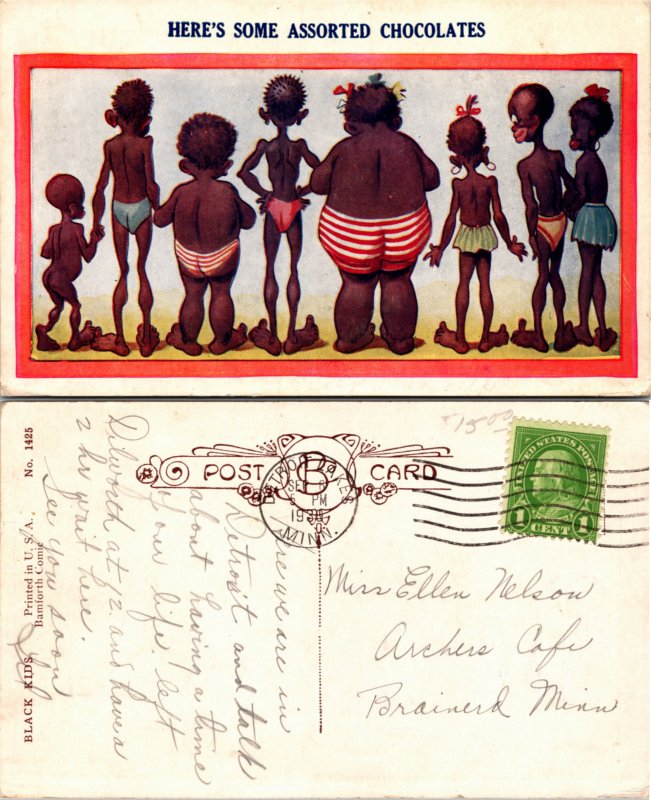 HERE'S SOME ASSORTED CHOCOLATES
BLACK KIDS
Printed in U. S. A.
Bamforth Comic
No. 1425
POST B CARD
DETROIT LAKES
SEP
PM
MINN.
UNITED STATES POSTAGE
1 CENT 1
$15.00
Here we are in
Detroit and talk
about having a time
of your life. left
Dilworth at 12 and have a
2 hr wait here.
See you soon
Miss Ellen Nelson
Archers Cafe
Brainerd Minn